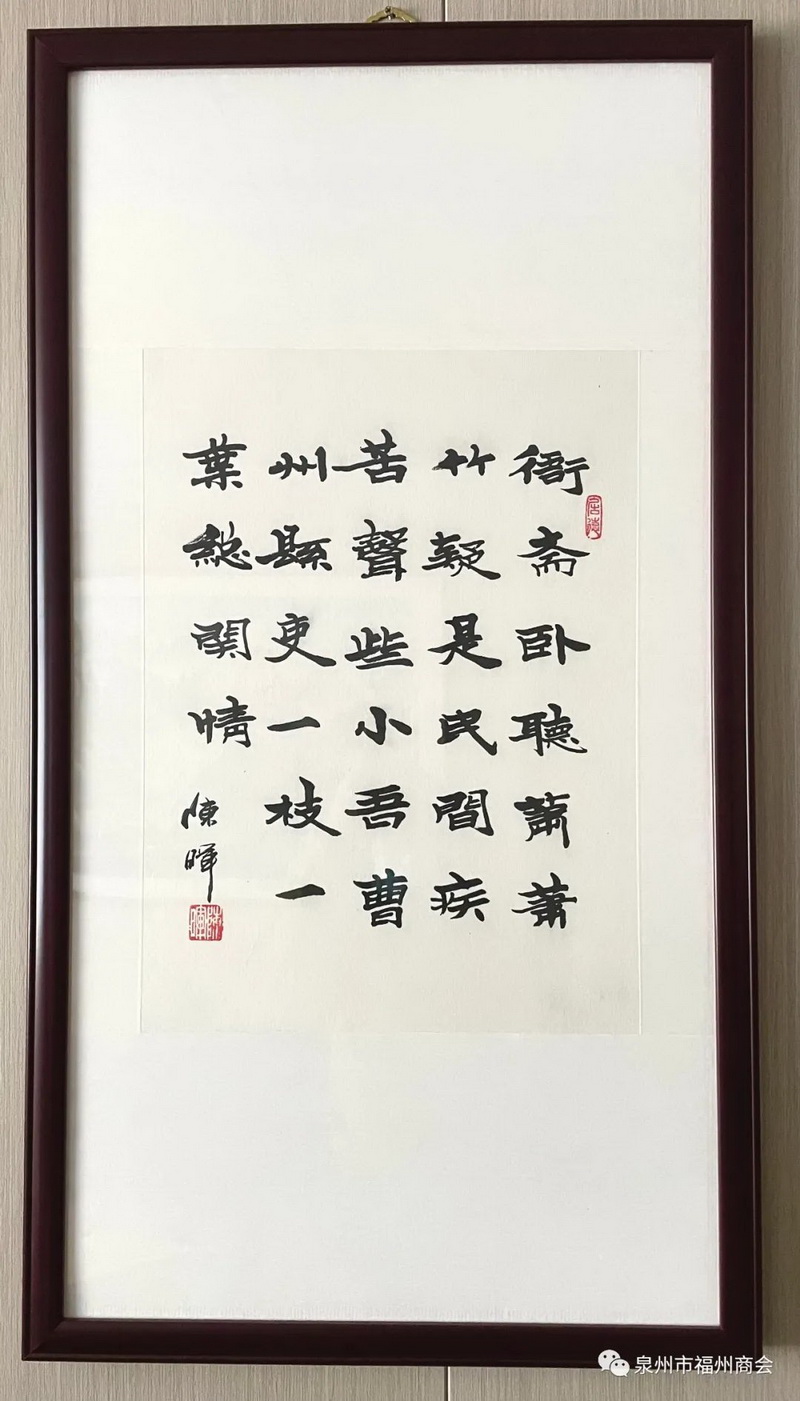 衙斋卧聽蕭蕭
竹疑是民間疾
苦聲些小吾曹
州縣吏一枝一
葉總關情
陳暉
泉州市福州商会